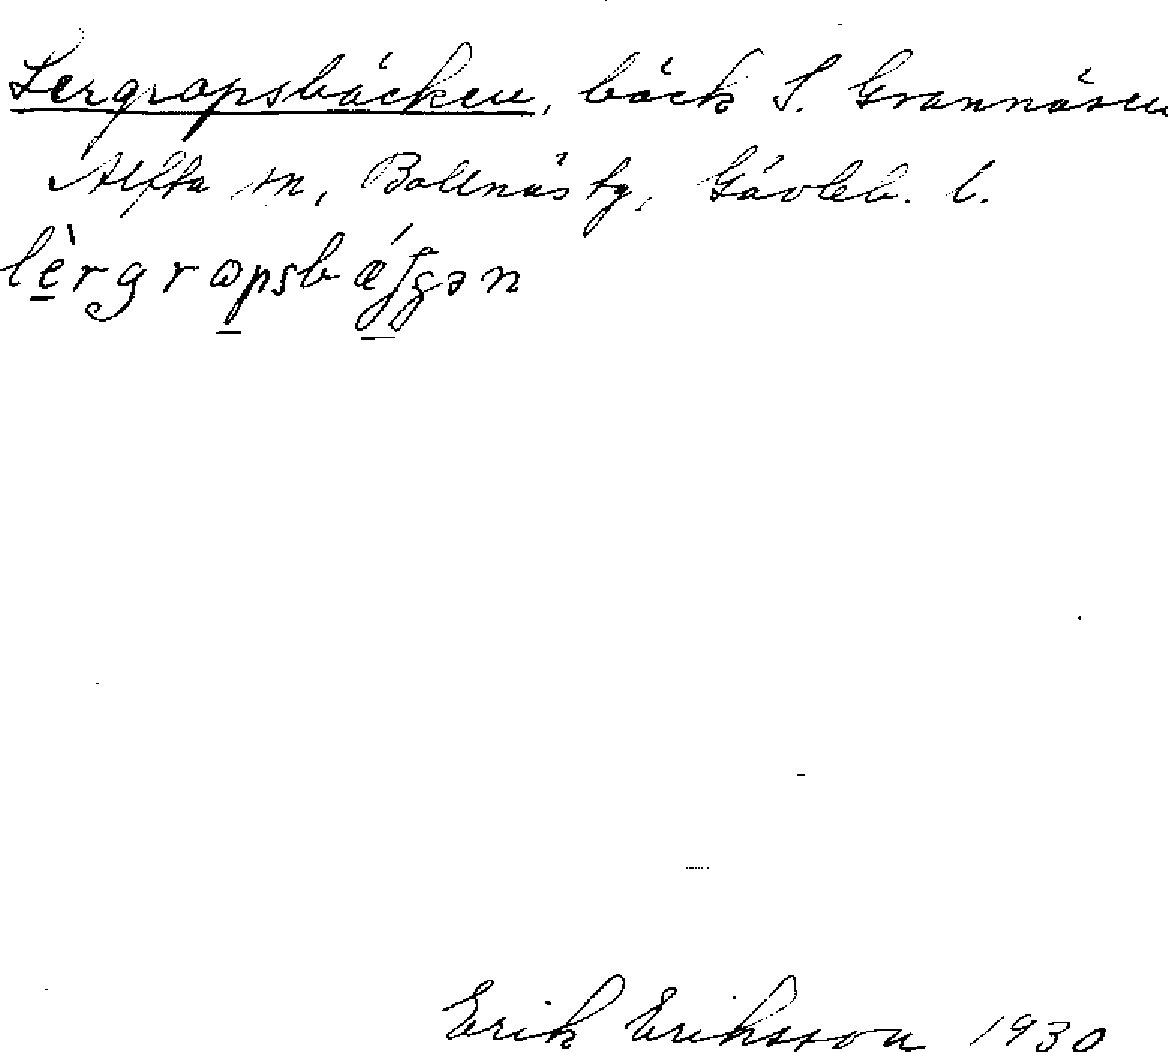 Lergropsbäcken, bäck S. Grannäsen
Alfta sn, Bollnäs tg, Gävleb. l.
lèrgrɷpsbǽʃgən
Erik Eriksson 1930